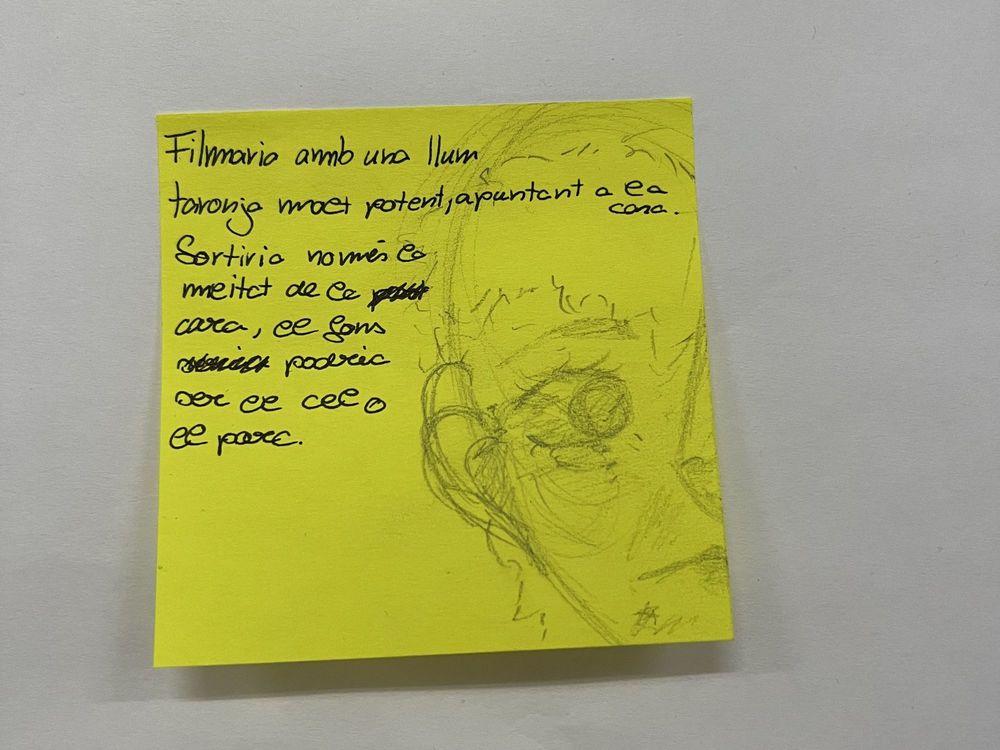 Filmaria amb una llum
taronja molt potent, apuntant a la
cara.
Sortiria només la
meitat de la
cara, el fons
podria
ser el cel o
el parc.